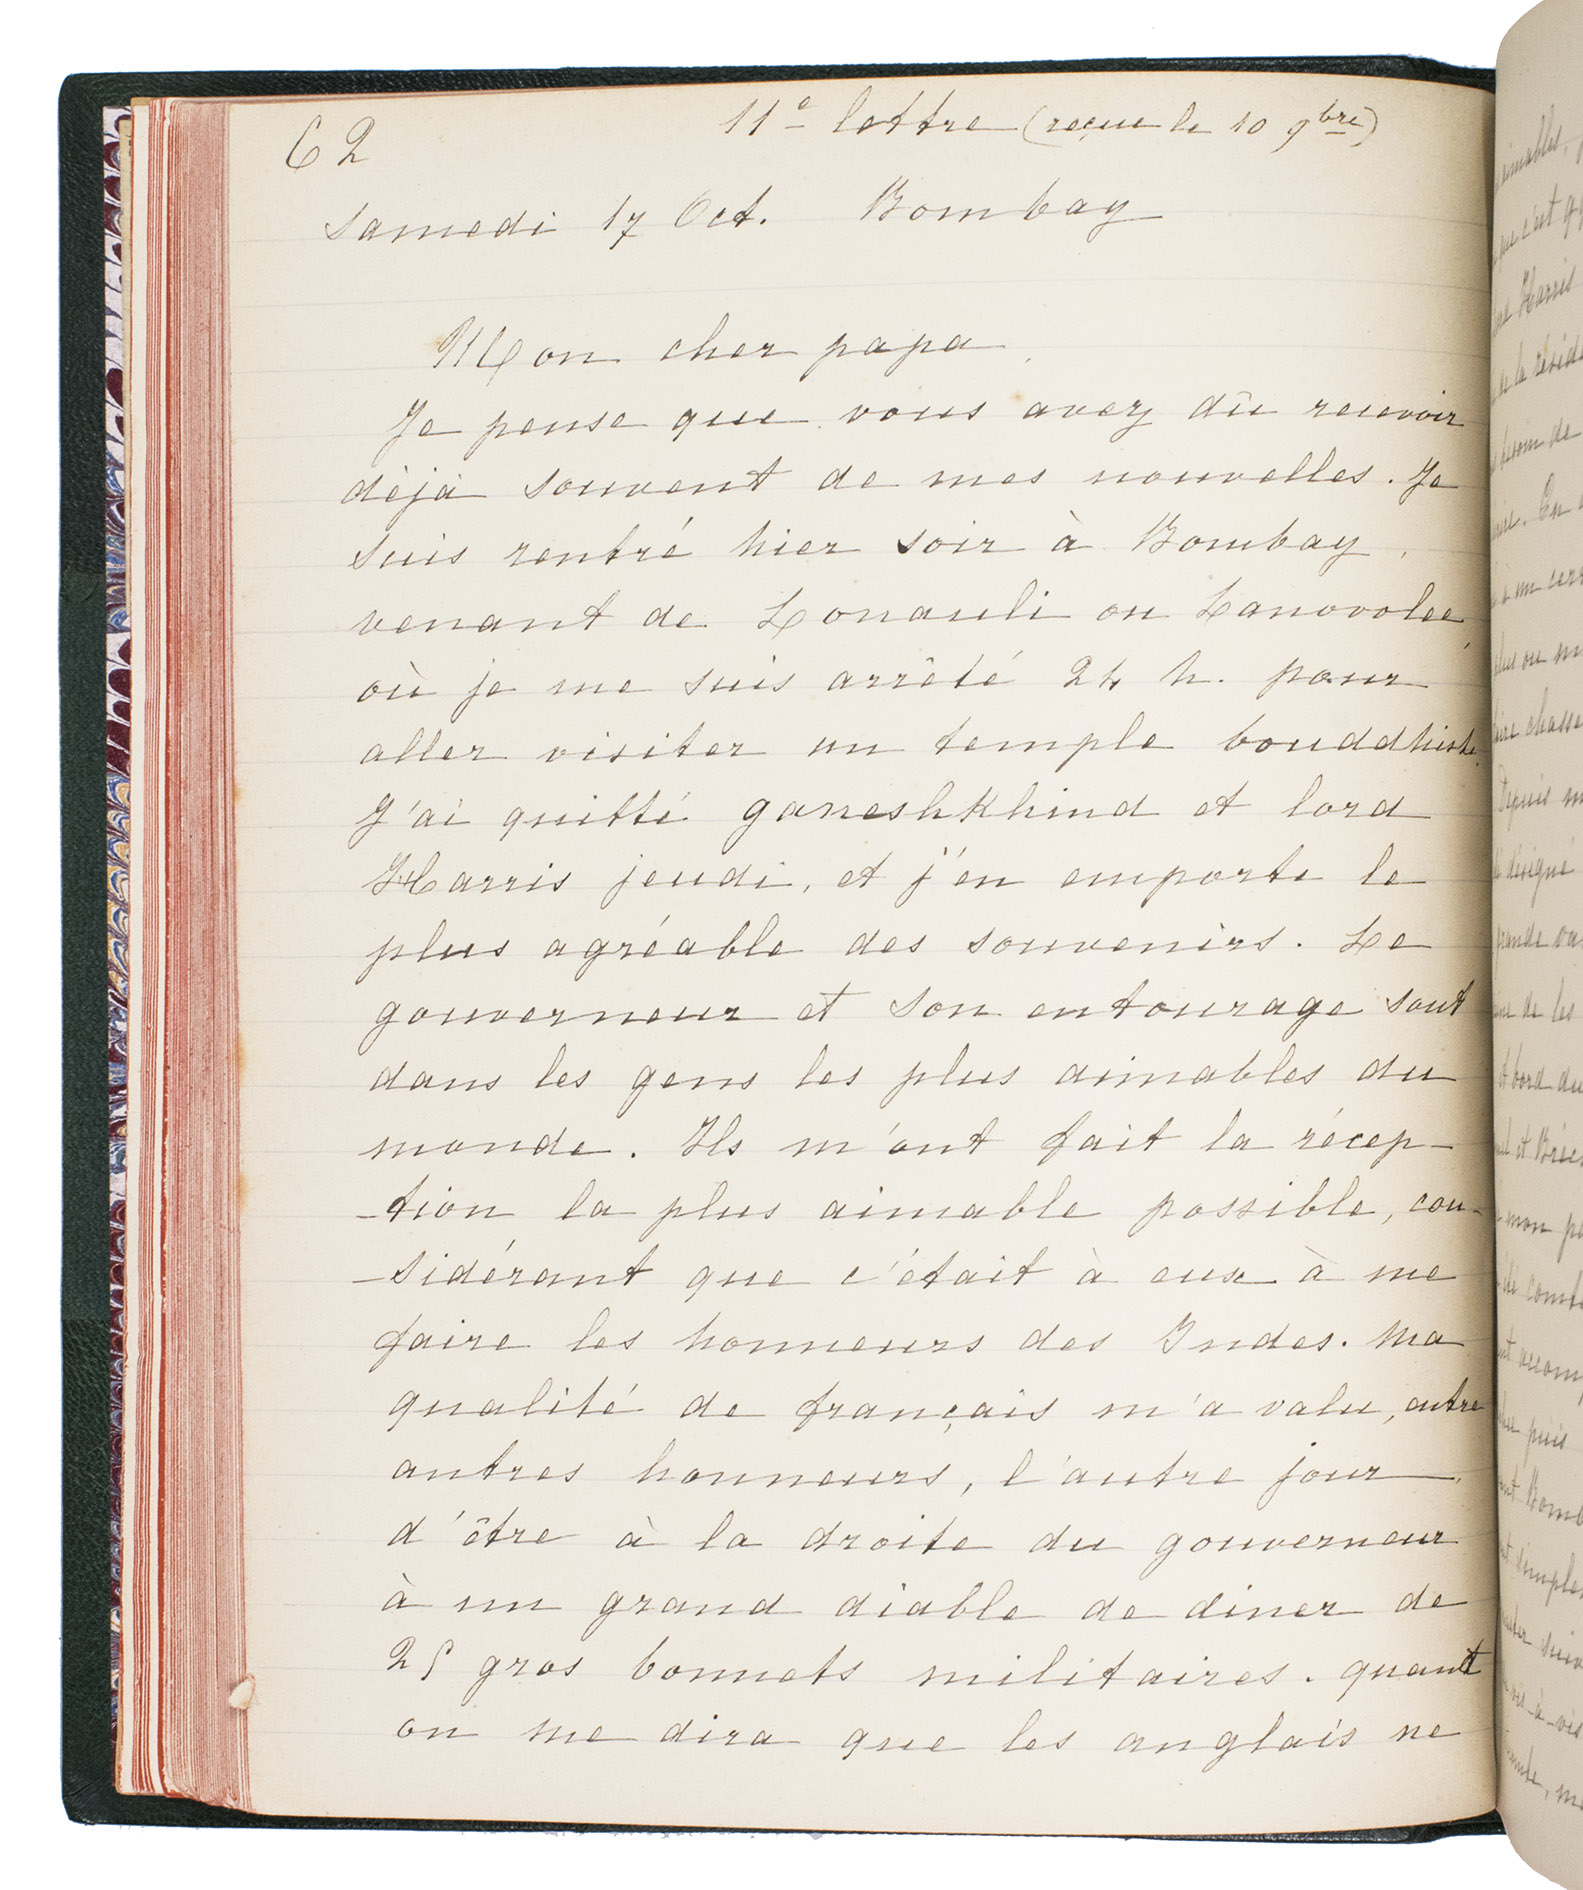 62
11e lettre (reçue le 10 9bre)
Samedi 17 Oct. Bombay
Mon cher papa
Je pense que vous avez dû recevoir
déjà souvent de mes nouvelles. Je
suis rentré hier soir à Bombay,
venant de Lonauli ou Lanovolee,
où je me suis arrêté 24 h. pour
aller visiter un temple bouddhiste.
J'ai quitté ganeshKhind et lord
Harris jeudi, et j'en emporte le
plus agréable des souvenirs. Le
gouverneur et son entourage sont
dans les gens les plus aimables du
monde. Ils m'ont fait la récep-
-tion la plus aimable possible, con-
-sidérant que c'était à eux à me
faire les honneurs des Indes. Ma
qualité de français m'a valu, entre
autres honneurs, l'autre jour,
d'être à la droite du gouverneur
à un grand diable de diner de
25 gros bonnets militaires. quant
on me dira que les anglais ne
aimables,
que c'est
Harris
de la
besoin de
On
à un
plus ou
chasse
Depuis
désigné
grande
de les
bord du
et
mon
puis